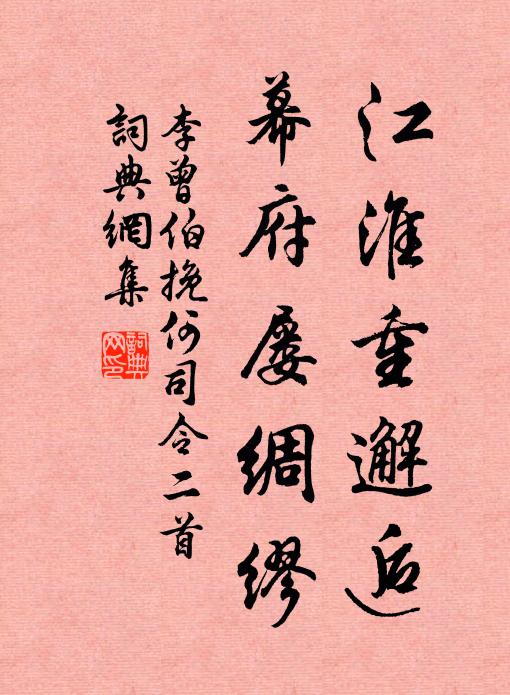 江淮重邂逅
幕府屡綢繆
李曾伯挽何司令二首
詞典網集
詞典網印